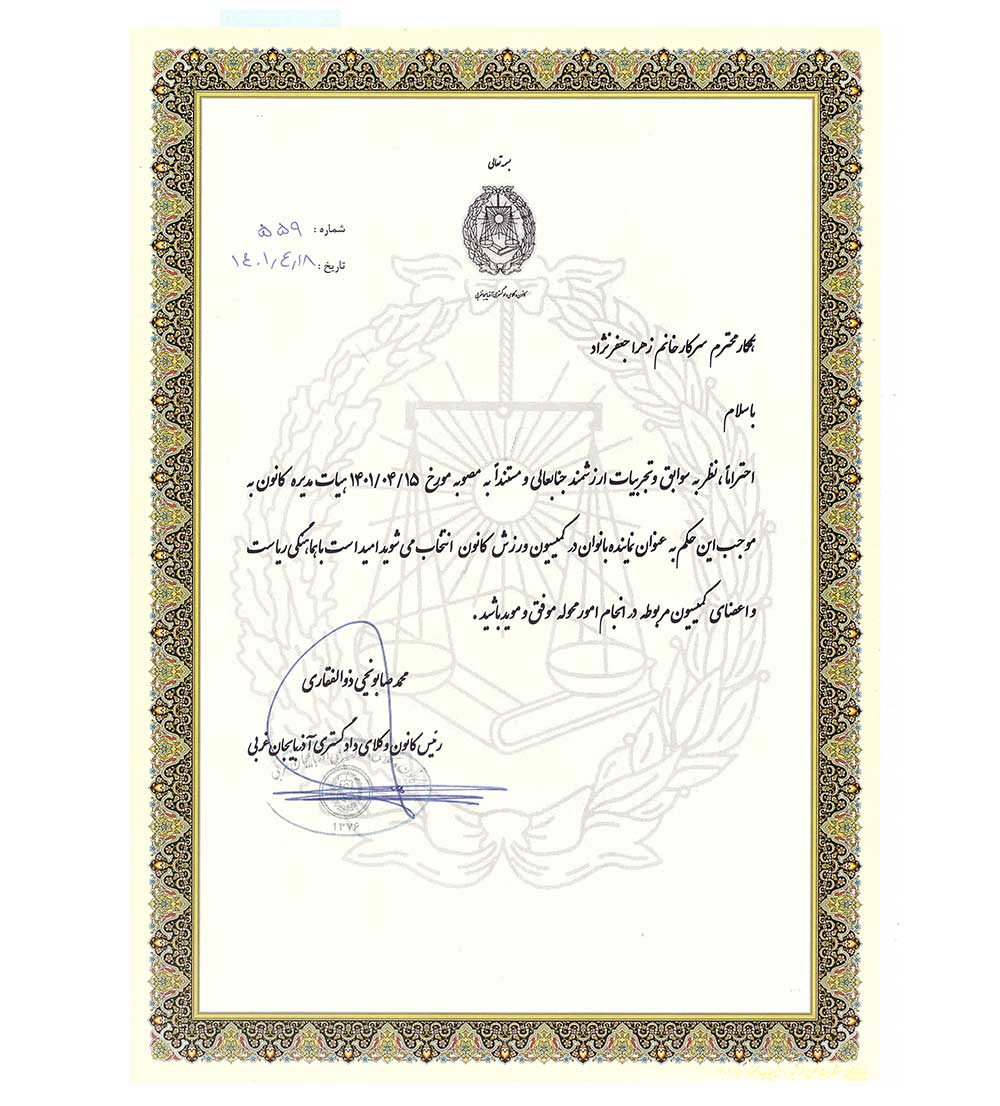 بسمه تعالی
شماره : ۵۵۹
تاریخ : ۱۴۰۱/۴/۱۸
کانون وکلای دادگستری آذربایجان غربی
همکار محترم سرکار خانم زهرا جعفرنژاد
باسلام
احتراماً ، نظر به سوابق و تجربیات ارزشمند جنابعالی و مستنداً به مصوبه مورخ ۱۴۰۱/۰۴/۱۵ هیات مدیره کانون به
موجب این حکم به عنوان نماینده بانوان در کمیسیون ورزش کانون انتخاب می شوید امید است با هماهنگی ریاست
و اعضای کمیسیون مربوطه در انجام امور محوله موفق و موید باشید .
محمد صابونچی ذوالفقاری
رئیس کانون وکلای دادگستری آذربایجان غربی
۱۳۷۶